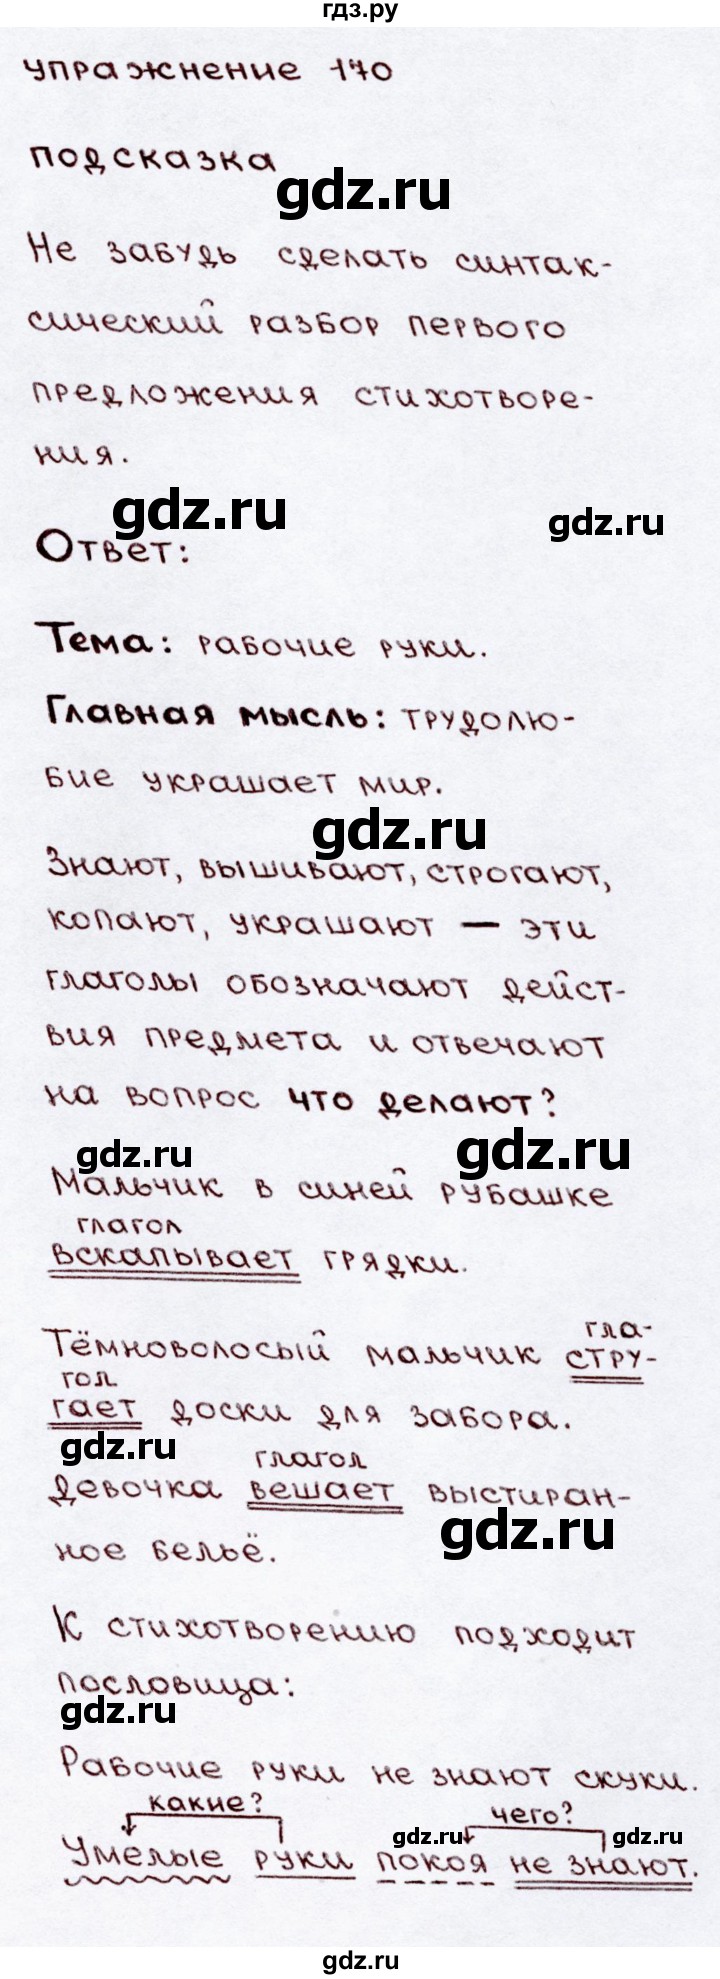 гдз.ру
упражнение 170
подсказка
gdz.ru
Не забудь сделать синтак-
сический разбор первого
предложения стихотворе-
ния.
gdz.ru
gdz.ru
Ответ:
Тема: рабочие руки.
Главная мысль: трудолю-
бие украшает мир.
gdz.ru
Знают, вышивают, строгают,
копают, украшают — эти
глаголы обозначают дейст-
вия предмета и отвечают
на вопрос что делают?
gdz.ru
gdz.ru
Мальчик в синей рубашке
глагол
вскапывает грядки.
гла-
Тёмноволосый мальчик стру-
гол
гает доски для забора.
gdz.ru
глагол
Девочка вешает выстиран-
gdz.ru
ное бельё.
К стихотворению подходит
пословица:
gdz.ru
Рабочие руки не знают скуки.
какие? чего?
gdz.ru gdz.ru
Умелые руки покоя не знают.
gdz.ru